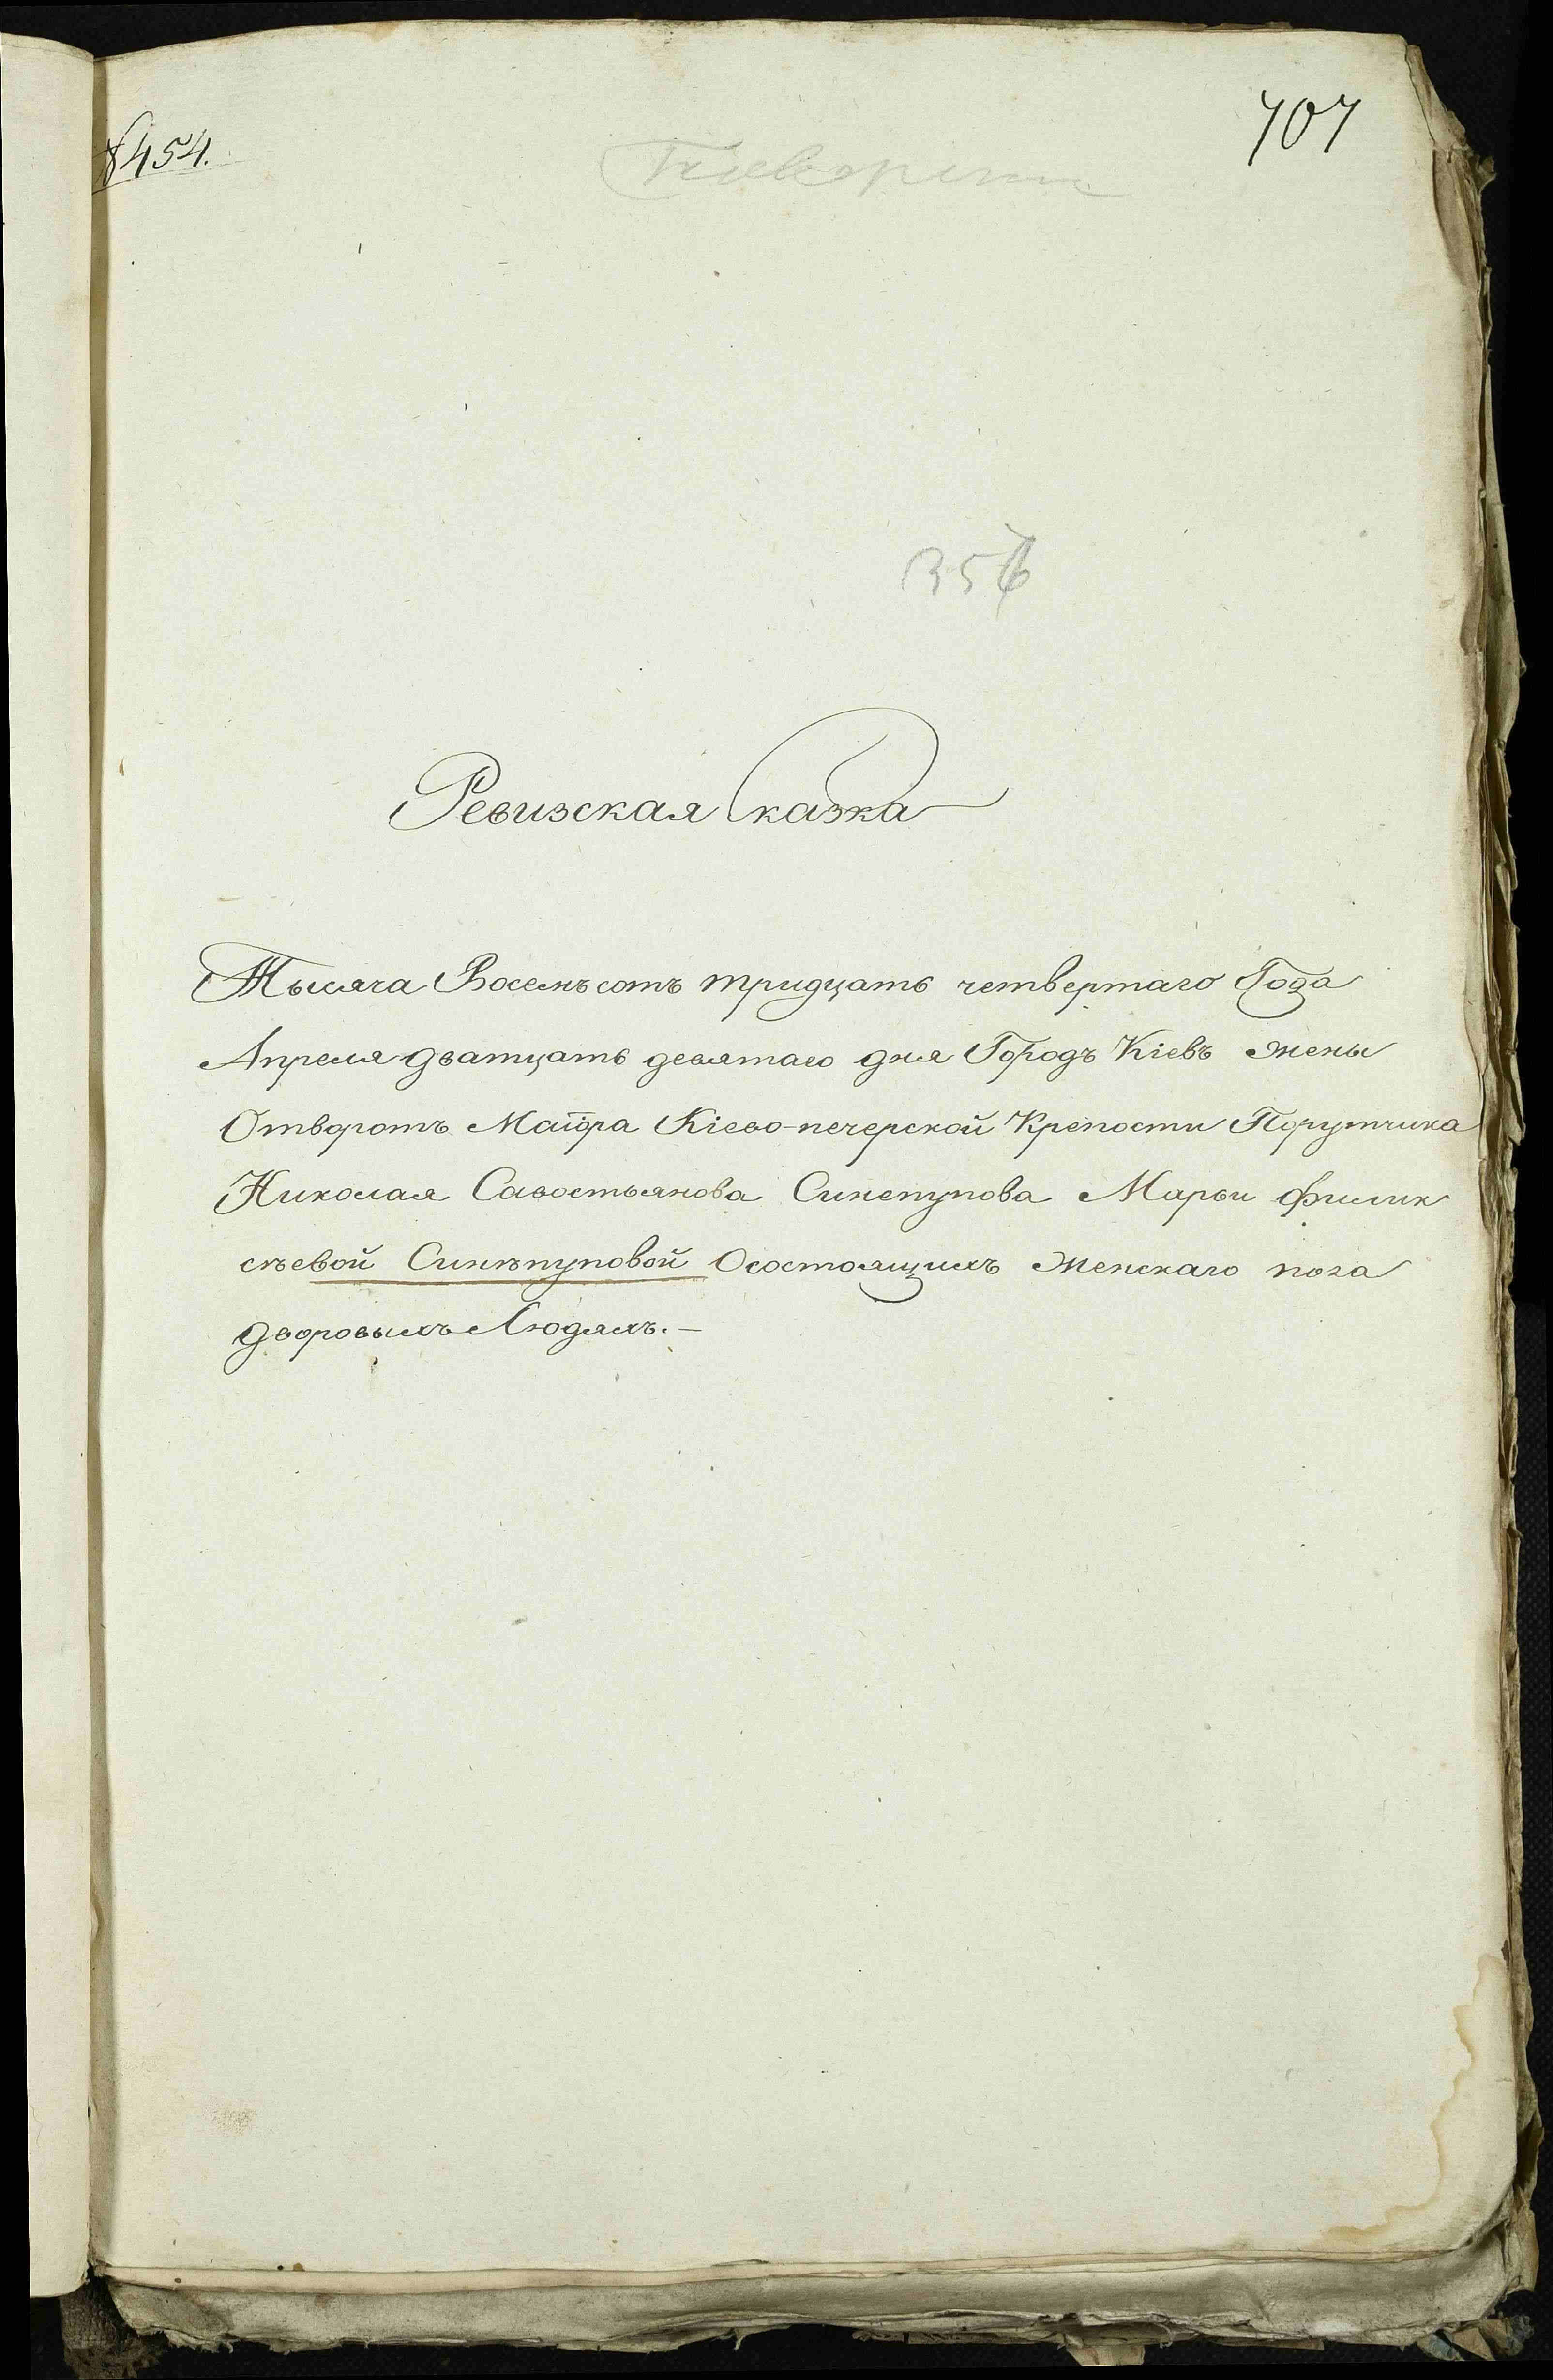 454.
707
356
Ревизская Сказка
Тысяча Восемъ сотъ тридцать четвертаго Года
Апреля дватцать девятаго дня Городъ Кіевъ жены
Отворотъ Маіора Кіево-печерской Крепости Порутчика
Николая Савостьянова Синепупова Марьи филик
съевой Синепуповой О состоящихъ женскаго пола
дворовыхъ Людяхъ.-